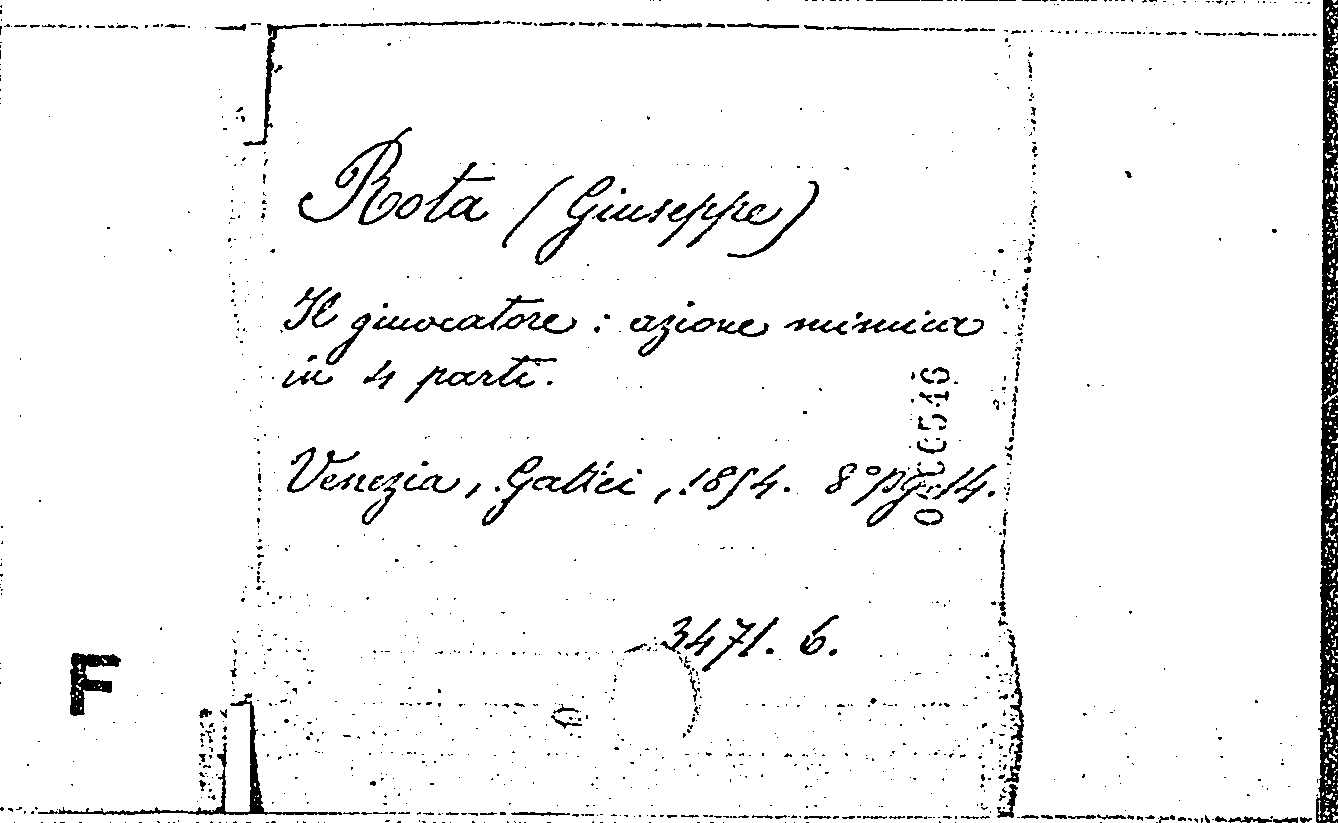 Rota (Giuseppe)
Il giuocatore : azione mimica
in 4 parti.
Venezia, Gattei, 1854. 8° pg. 14.
3471. 6.
F